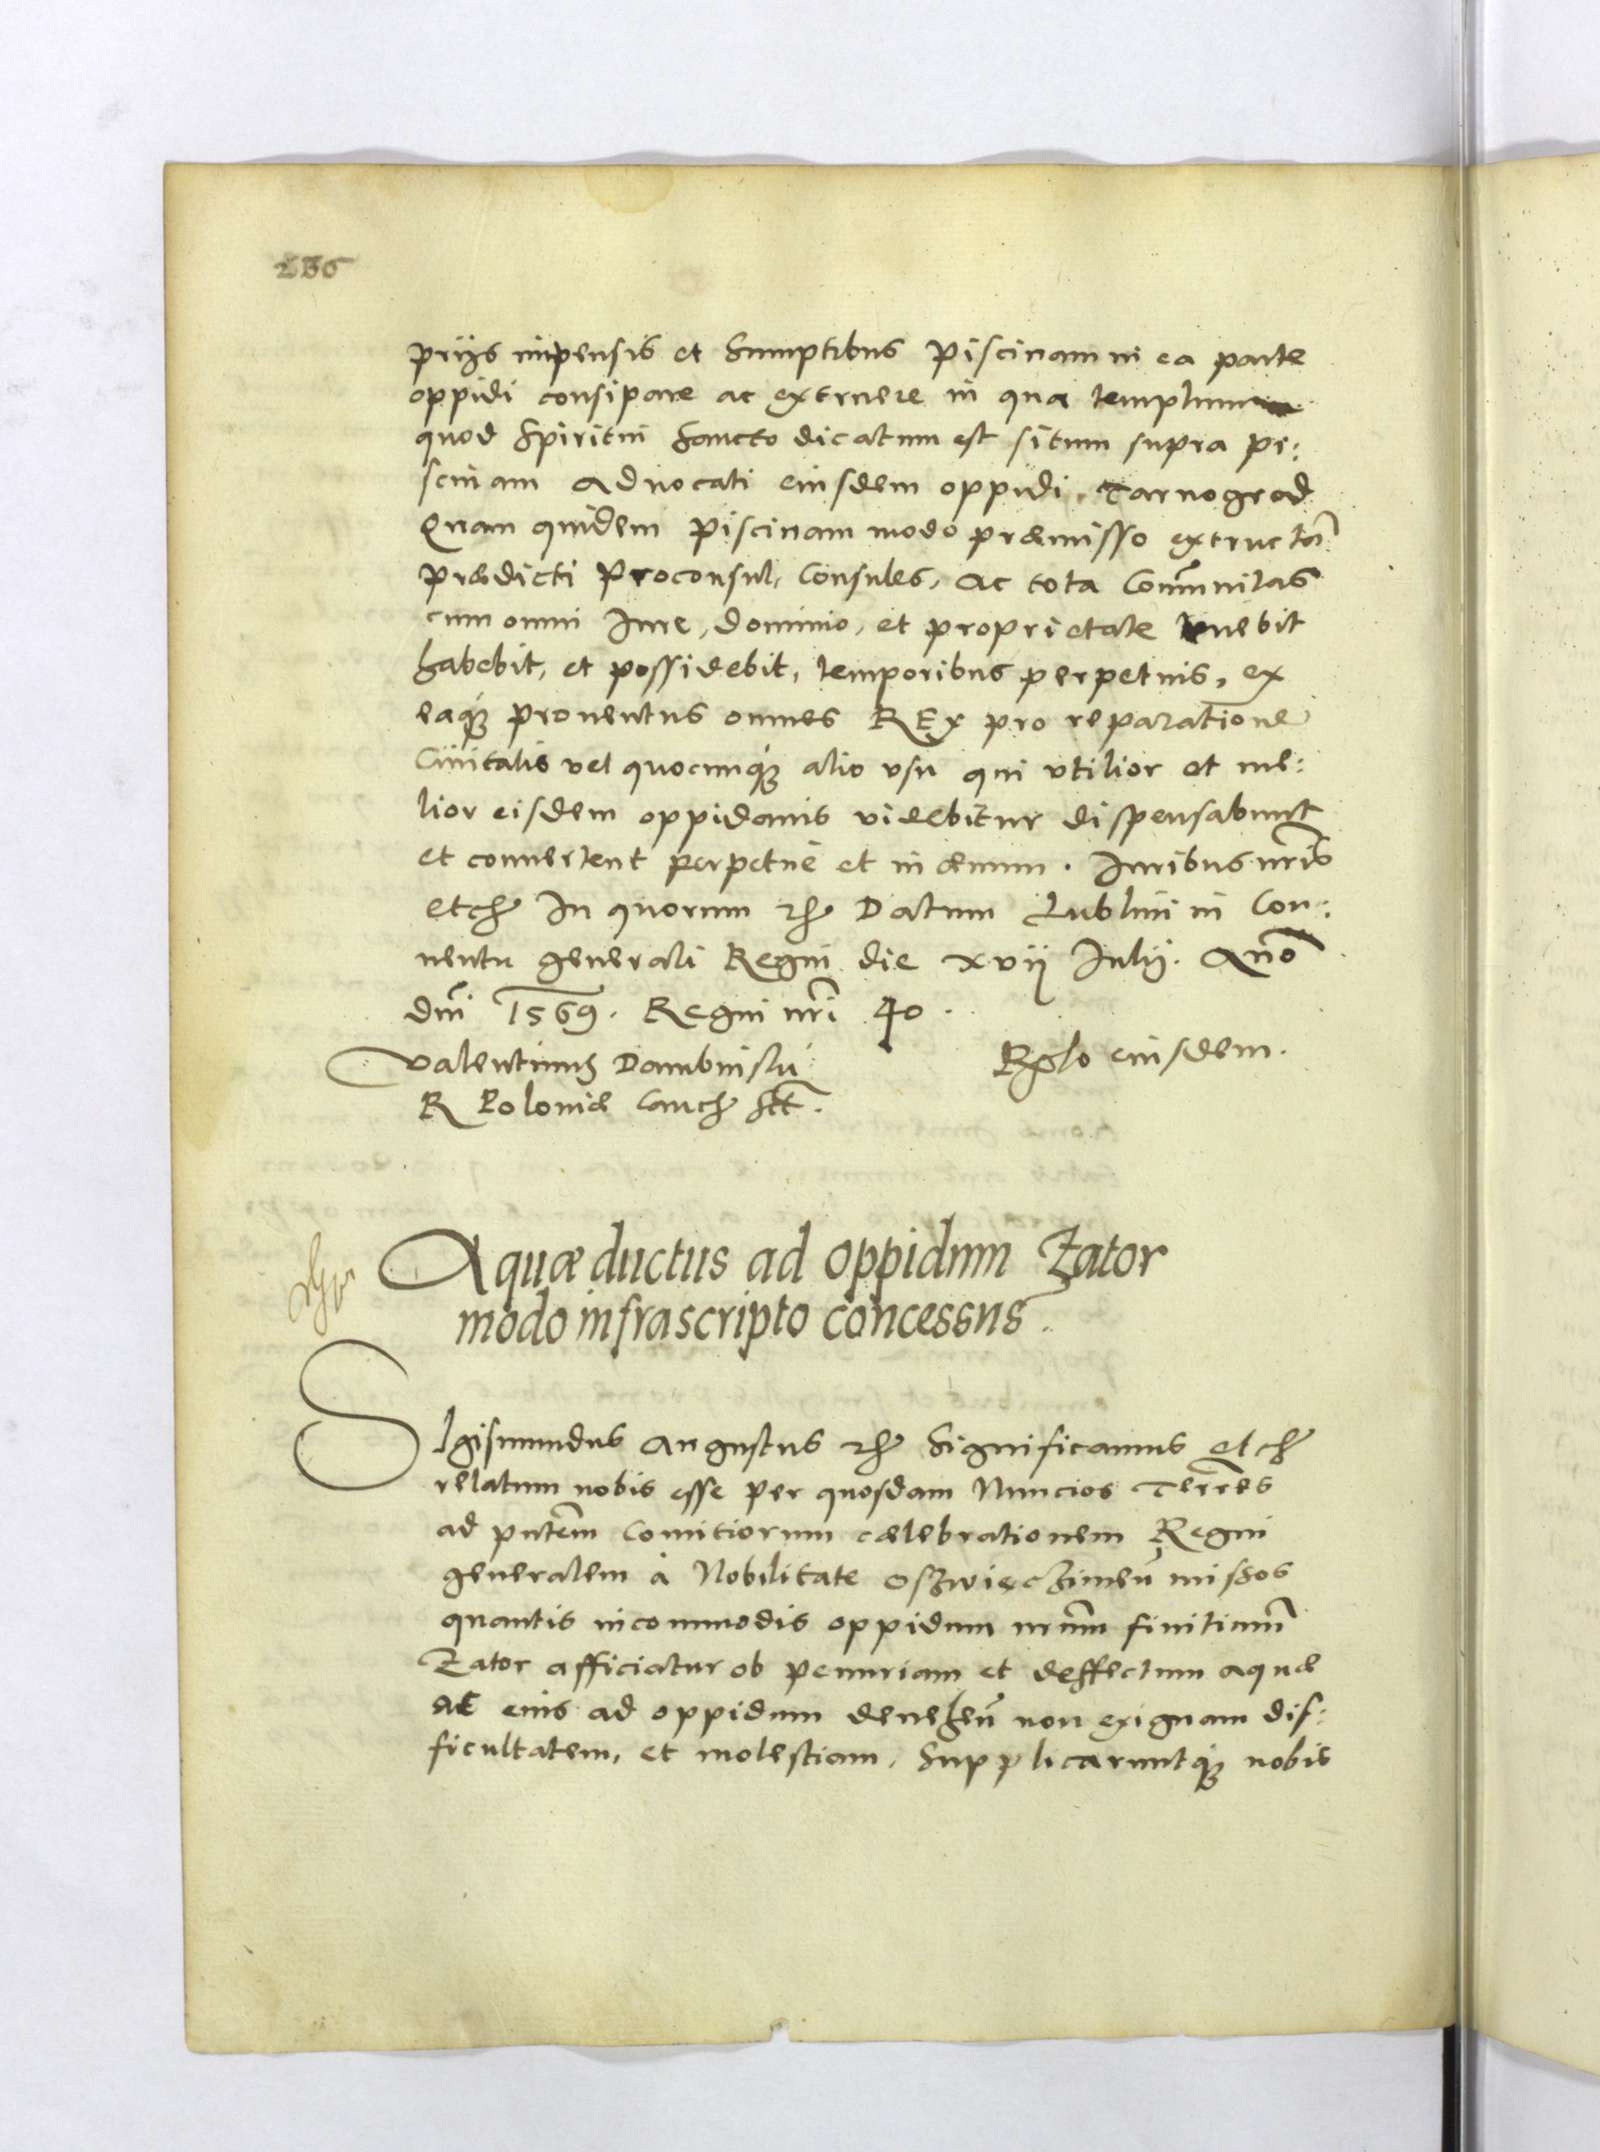 236
prijs impensis et Sumptibus Piscinam in ea parte
oppidi consipare ac extruere in qua templum
quod Spiritui Sancto dicatum est situm supra pi:
scinam Aduocati eiusdem oppidi, Tarnogrod
Quam quidem Piscinam modo præmisso extructã
prædicti Proconsul, Consules, ac tota Com̃unitas
cum omni Iure, dominio, et proprietate tenebit
habebit, et possidebit, temporibus perpetuis, ex
eaq3 prouentus omnes REx pro reparatione
Ciuitatis vel quocunq3 alio vsu qui vtilior et me:
lior eisdem oppidanis videbitur dispensabunt
et conuertent perpetuè et in æuum. Iuribus nr̃is
etc̃ In quorum rē Datum Lublini in Con:
uentu generali Regni die xvij Iulij. Año
dñi 1569. Regni nr̃i 40.
Valentinus Dambinski Rg̃lo eiusdem.
R Poloniæ Canc̃ st̃t.
Aquæ ductus ad oppidum Zator
modo infrascripto concessus.
SIgismundus Augustus rē Significamus etc̃
relatum nobis esse per quosdam Nuncios Terr̃es
ad pñtem Comitiorum cælebrationem Regni
generalem à Nobilitate Oszwięczimeñ missos
quantis incommodis oppidum nr̃um finitimũ
Zator afficiatur ob penuriam et deffectum aquæ
ac eius ad oppidum deueheñ non exiguam dif:
ficultatem, et molestiam, Supplicaruntq3 nobis